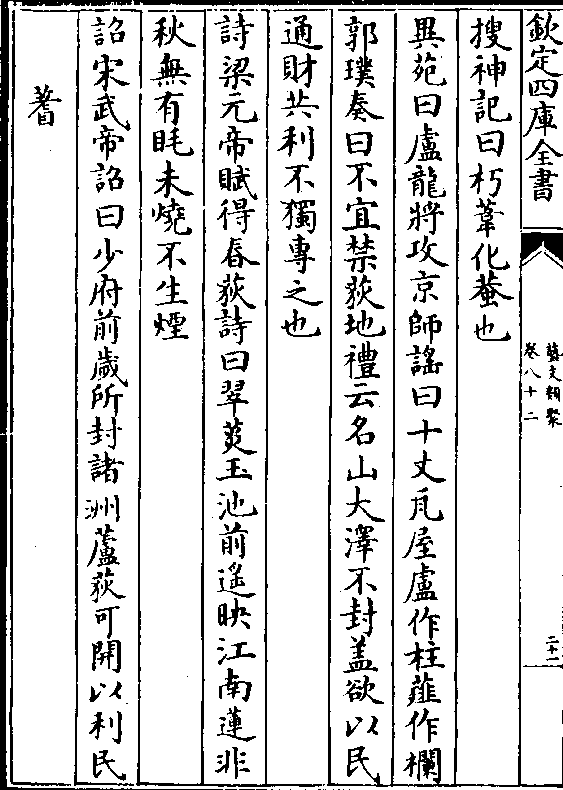 欽定四庫全書
藝文類聚
卷八十二
二十一
搜神記曰朽葦化蛬也
異苑曰盧龍將攻京師謡曰十丈瓦屋盧作柱薤作欄
郭璞奏曰不宜禁荻地禮云名山大澤不封盖欲以民
通財共利不獨專之也
詩梁元帝賦得春荻詩曰翠荚玉池前遥映江南蓮非
秋無有眊未燒不生煙
詔宋武帝詔曰少府前歲所封諸洲蘆荻可開以利民
蓍